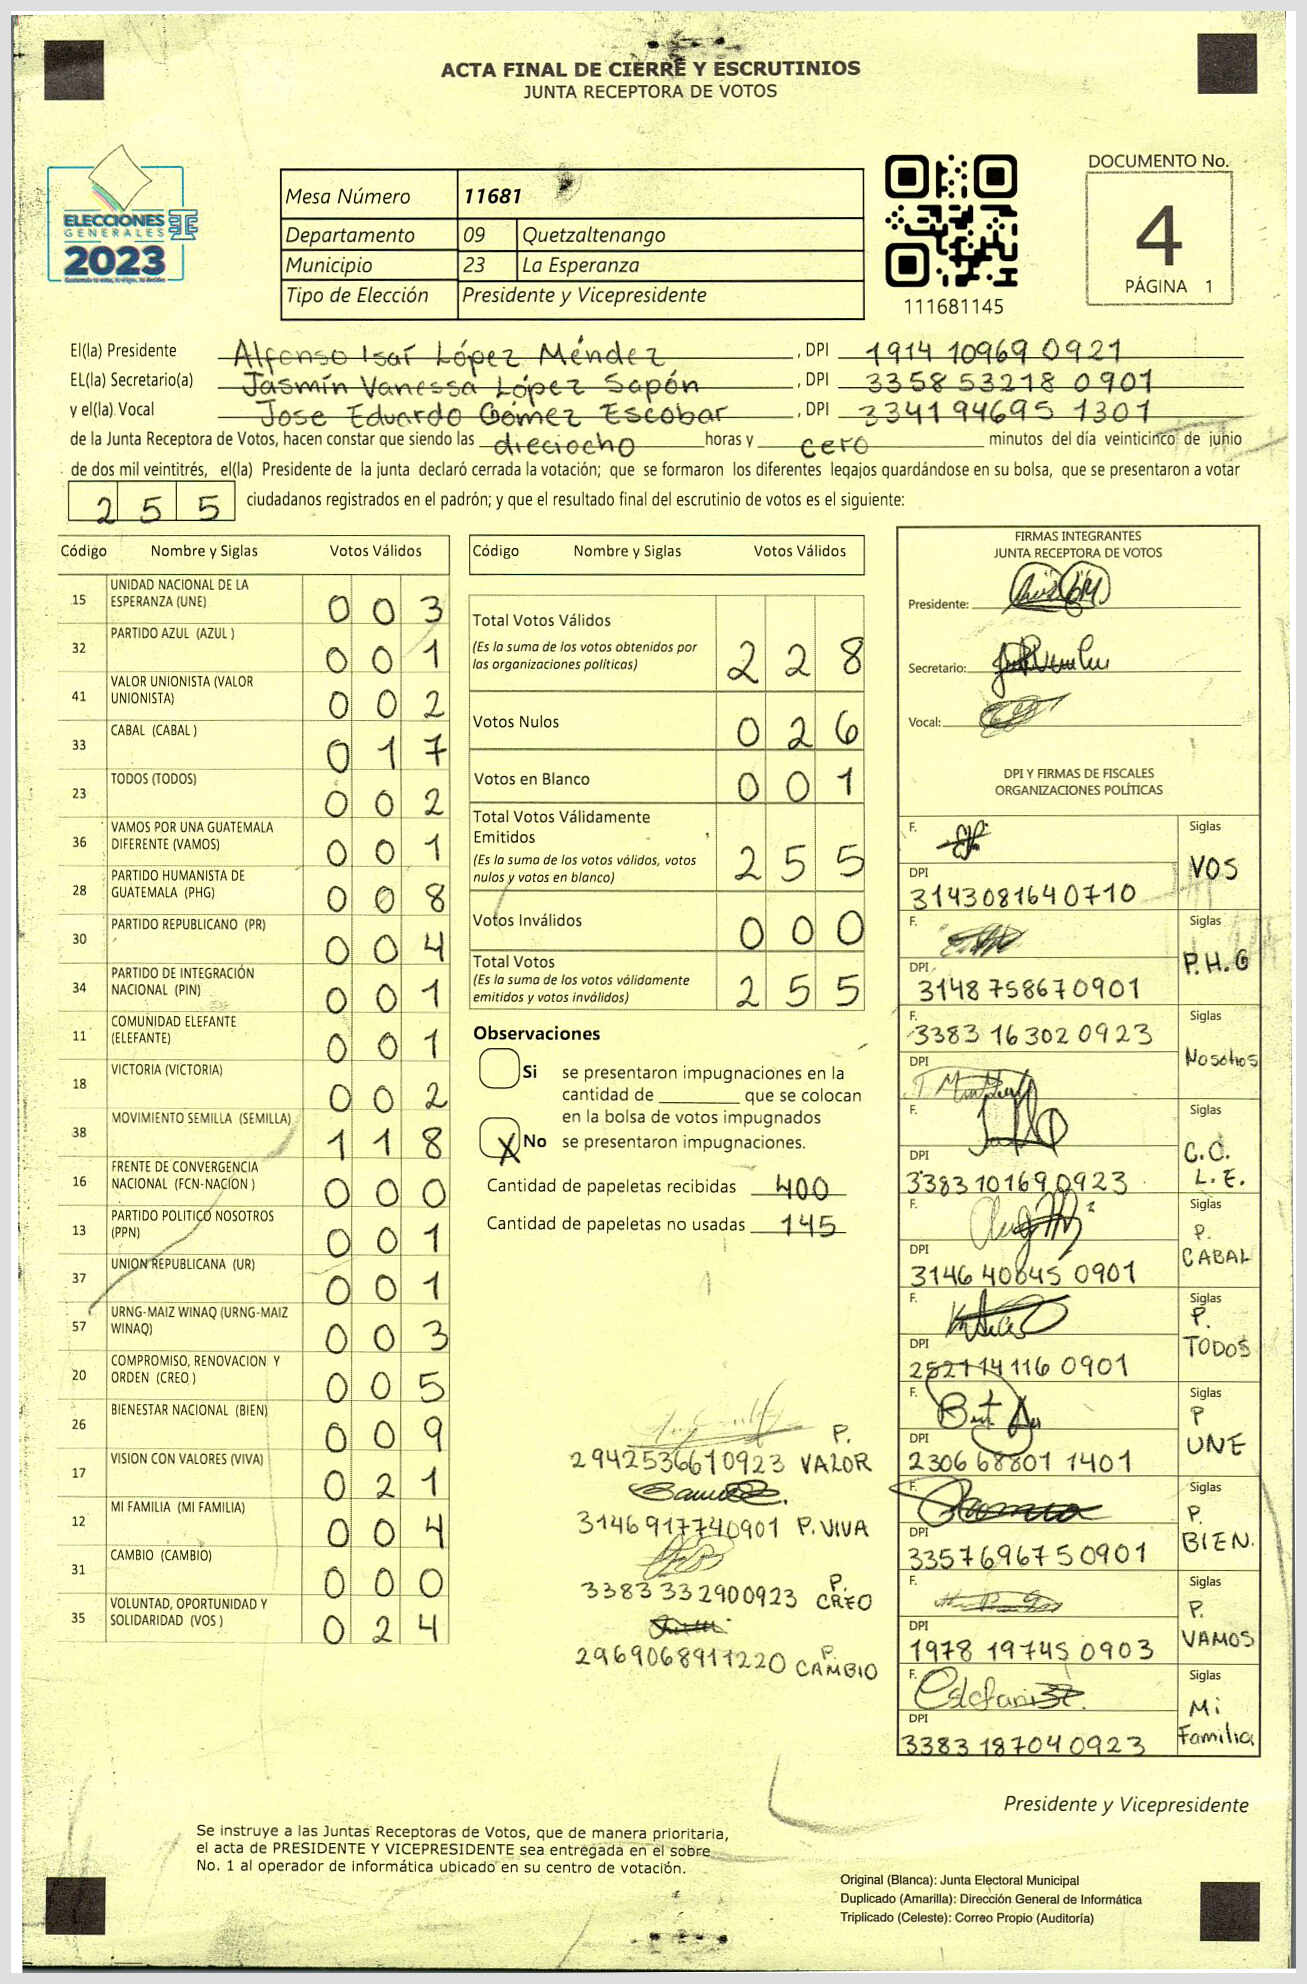 ACTA FINAL DE CIERRE Y ESCRUTINIOS
JUNTA RECEPTORA DE VOTOS
ELECCIONES
GENERALES
2023
Mesa Número 11681
Departamento 09 Quetzaltenango
Municipio 23 La Esperanza
Tipo de Elección Presidente y Vicepresidente
111681145
DOCUMENTO No.
4
PÁGINA 1
El(la) Presidente Alfonso Isaí López Méndez, DPI 1914 10969 0921
EL(la) Secretario(a) Jasmín Vanessa López Sapón, DPI 3358 53218 0901
y el(la) Vocal Jose Eduardo Gómez Escobar, DPI 3341 94695 1301
de la Junta Receptora de Votos, hacen constar que siendo las dieciocho horas y cero minutos del día veinticinco de junio
de dos mil veintitrés, el(la) Presidente de la junta declaró cerrada la votación; que se formaron los diferentes legajos guardándose en su bolsa, que se presentaron a votar
255 ciudadanos registrados en el padrón; y que el resultado final del escrutinio de votos es el siguiente:
Código Nombre y Siglas Votos Válidos
15 UNIDAD NACIONAL DE LA ESPERANZA (UNE) 003
32 PARTIDO AZUL (AZUL ) 001
41 VALOR UNIONISTA (VALOR UNIONISTA) 002
33 CABAL (CABAL ) 017
23 TODOS (TODOS) 002
36 VAMOS POR UNA GUATEMALA DIFERENTE (VAMOS) 001
28 PARTIDO HUMANISTA DE GUATEMALA (PHG) 008
30 PARTIDO REPUBLICANO (PR) 004
34 PARTIDO DE INTEGRACIÓN NACIONAL (PIN) 001
11 COMUNIDAD ELEFANTE (ELEFANTE) 001
18 VICTORIA (VICTORIA) 002
38 MOVIMIENTO SEMILLA (SEMILLA) 118
16 FRENTE DE CONVERGENCIA NACIONAL (FCN-NACION ) 000
13 PARTIDO POLITICO NOSOTROS (PPN) 001
37 UNION REPUBLICANA (UR) 001
57 URNG-MAIZ WINAQ (URNG-MAIZ WINAQ) 003
20 COMPROMISO, RENOVACION Y ORDEN (CREO ) 005
26 BIENESTAR NACIONAL (BIEN) 009
17 VISION CON VALORES (VIVA) 021
12 MI FAMILIA (MI FAMILIA) 004
31 CAMBIO (CAMBIO) 000
35 VOLUNTAD, OPORTUNIDAD Y SOLIDARIDAD (VOS ) 024
Código Nombre y Siglas Votos Válidos
Total Votos Válidos 228
(Es la suma de los votos obtenidos por
las organizaciones políticas)
Votos Nulos 026
Votos en Blanco 001
Total Votos Válidamente
Emitidos 255
(Es la suma de los votos válidos, votos
nulos y votos en blanco)
Votos Inválidos 000
Total Votos 255
(Es la suma de los votos válidamente
emitidos y votos inválidos)
Observaciones
Si se presentaron impugnaciones en la
cantidad de ________ que se colocan
en la bolsa de votos impugnados
X No se presentaron impugnaciones.
Cantidad de papeletas recibidas 400
Cantidad de papeletas no usadas 145
P.
2942536610923 VALOR
3146917740901 P. VIVA
P.
3383 332900923 CREO
P.
2969068911220 CAMBIO
FIRMAS INTEGRANTES
JUNTA RECEPTORA DE VOTOS
Presidente:
Secretario:
Vocal:
DPI Y FIRMAS DE FISCALES
ORGANIZACIONES POLÍTICAS
F. Siglas
VOS
DPI
3143081640710
F. Siglas
P.H.G
DPI
3148 758670901
F. Siglas
3383 16302 0923
Nosotros
DPI
F. Siglas
C.C.
L.E.
DPI
3383101690923
F. Siglas
P.
CABAL
DPI
3146 40645 0901
F. Siglas
P.
TODOS
DPI
2521141160901
F. Siglas
P
UNE
DPI
2306 68801 1401
F. Siglas
P.
BIEN.
DPI
3357696750901
F. Siglas
P.
VAMOS
DPI
1978 19745 0903
F. Siglas
Mi
Familia
DPI
3383 18704 0923
Presidente y Vicepresidente
Se instruye a las Juntas Receptoras de Votos, que de manera prioritaria,
el acta de PRESIDENTE Y VICEPRESIDENTE sea entregada en el sobre
No. 1 al operador de informática ubicado en su centro de votación.
Original (Blanca): Junta Electoral Municipal
Duplicado (Amarilla): Dirección General de Informática
Triplicado (Celeste): Correo Propio (Auditoría)